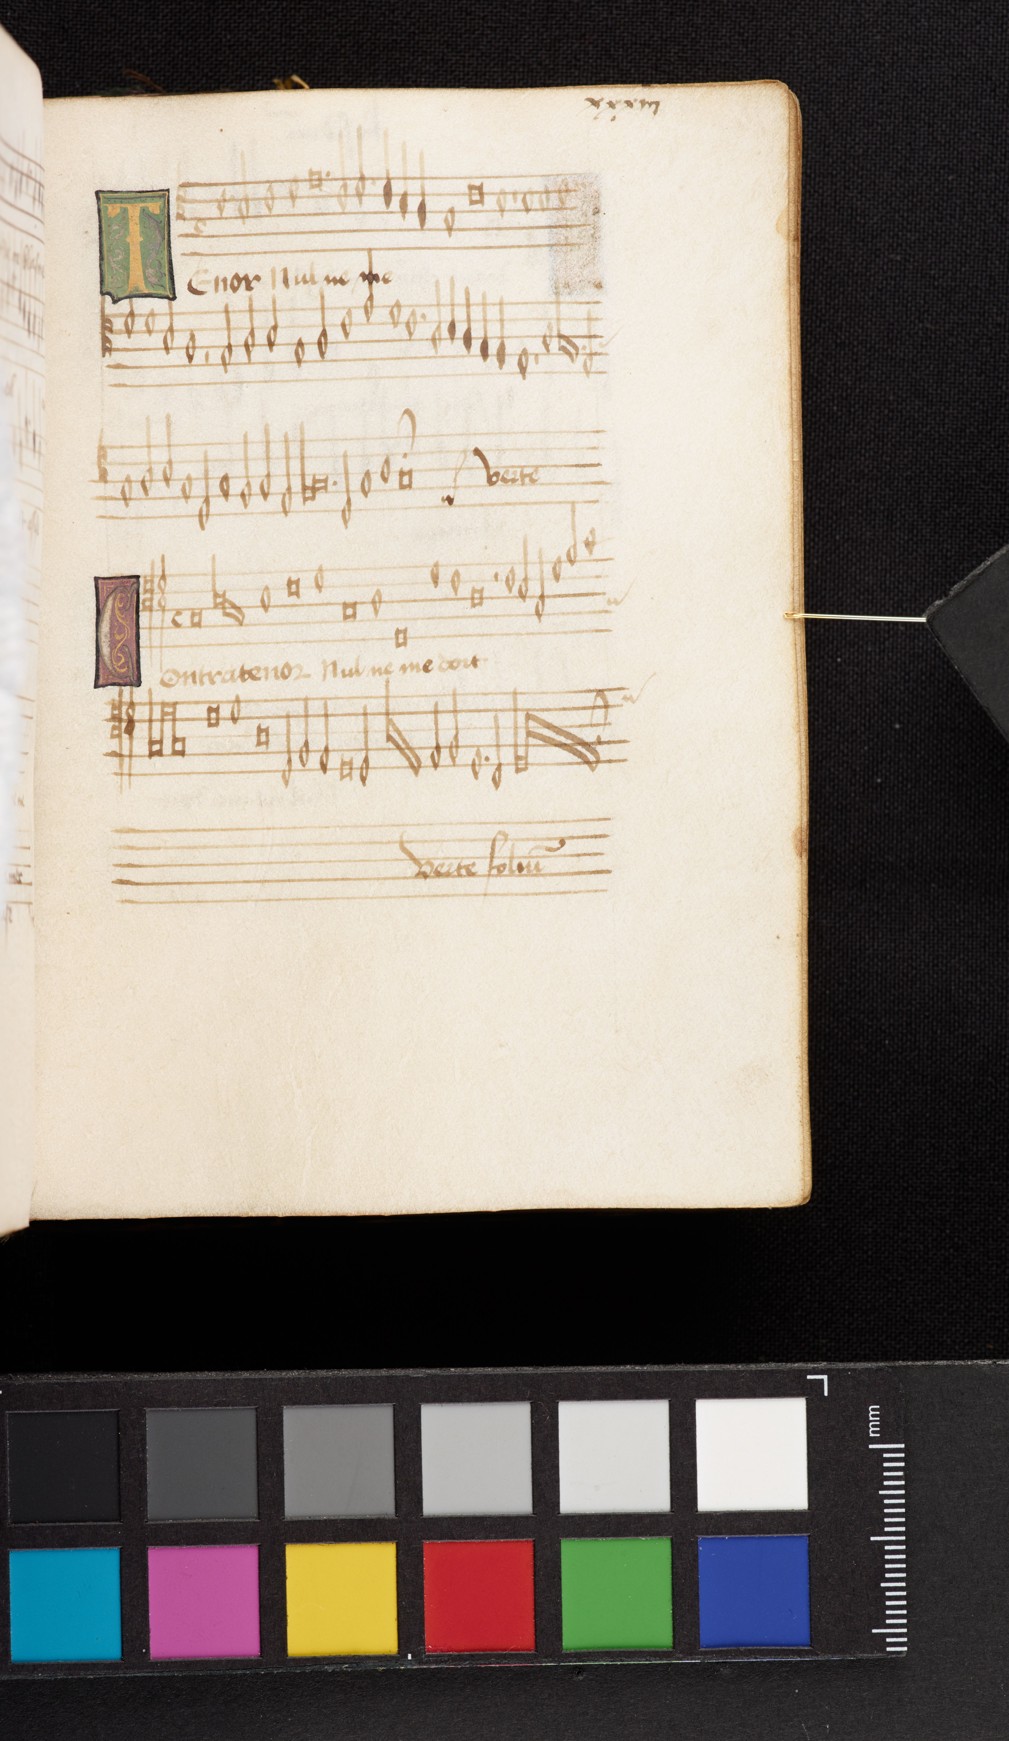 xxxiii
TEnor Nul ne me
verte
COntratenor Nul ne me doit
verte foliū
mm